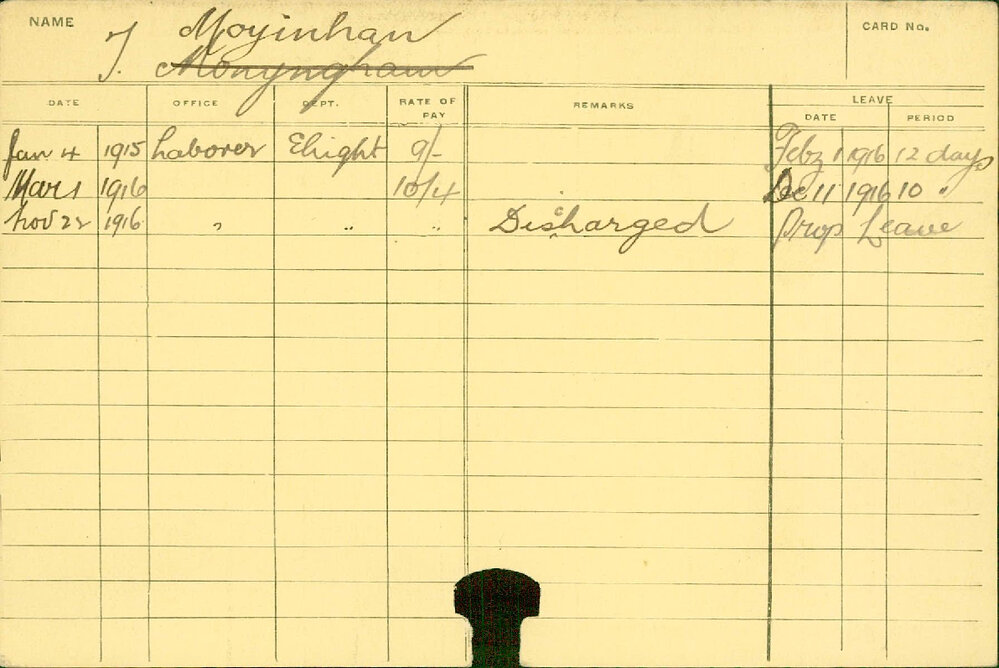 NAME Moyinhan CARD No.
J. Monyngham
DATE OFFICE DEPT. RATE OF PAY REMARKS LEAVE
DATE PERIOD
Jan 4 1915 Laborer Elight 9/- Feby 1 1916 12 days
Mar 1 1916 10/4 Dec 11 1916 10 "
Nov 22 1916 " " " Discharged Prop Leave